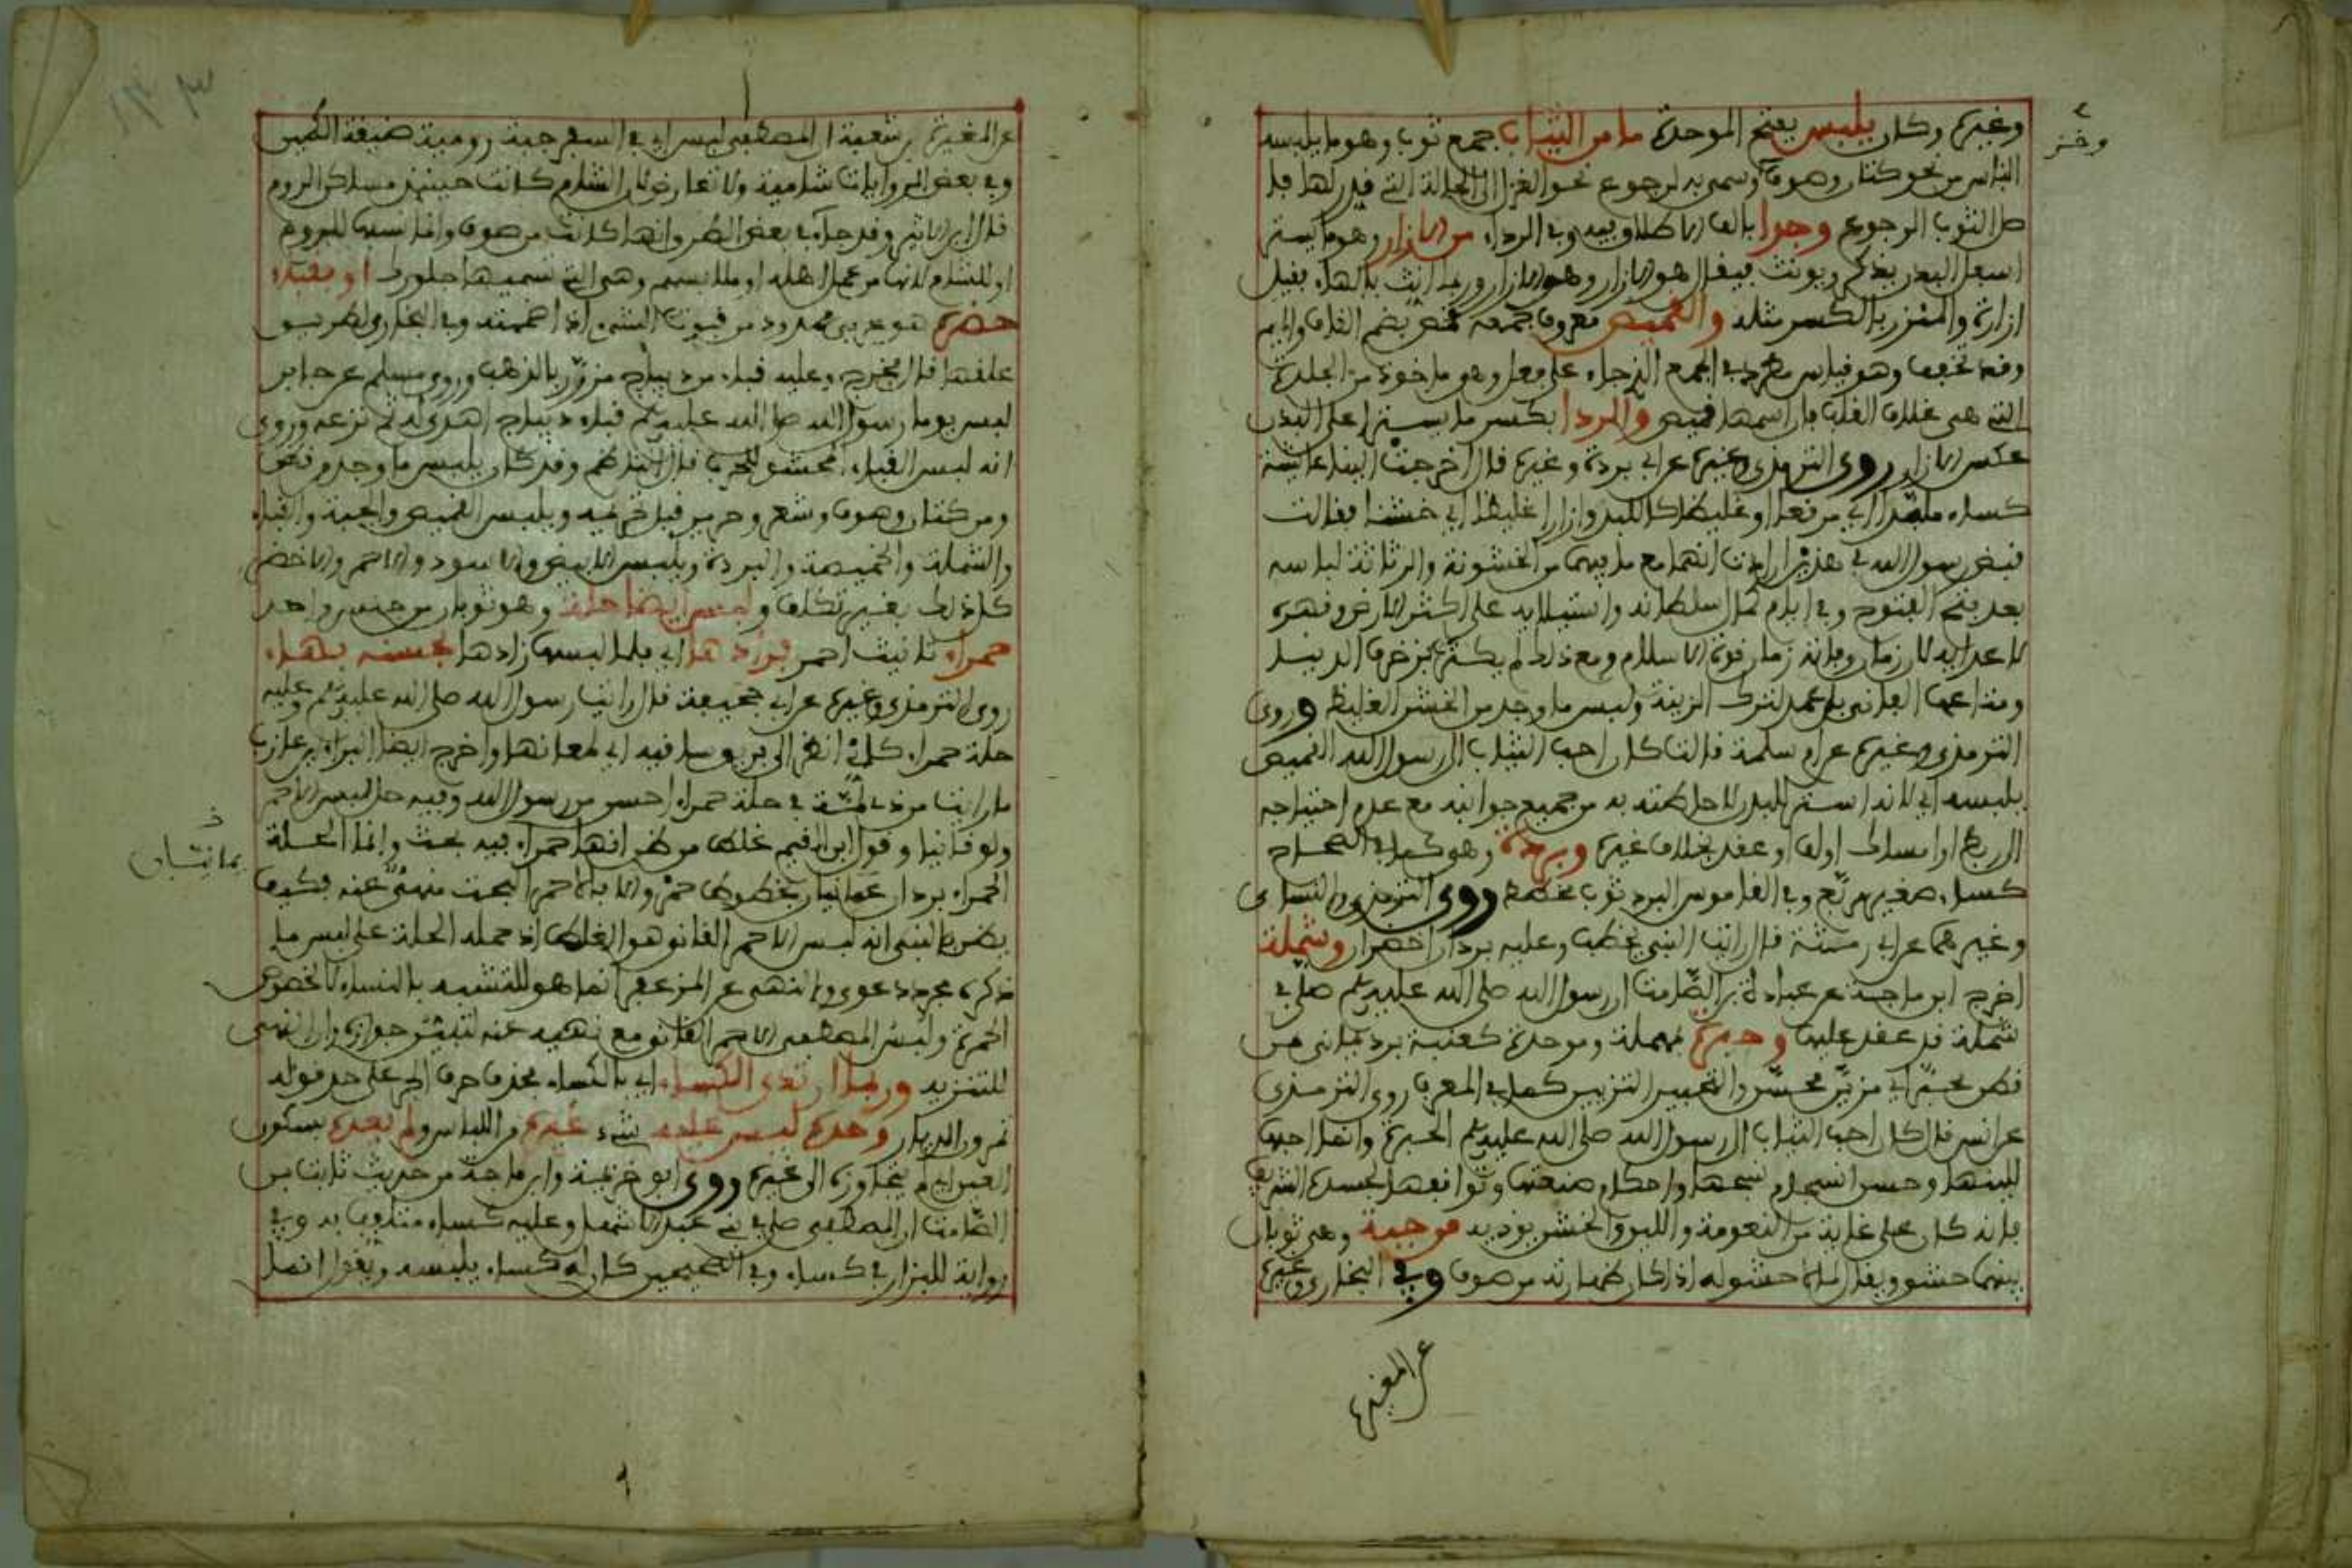 وغيره وكان يلبس بفتح الموحدة ما من الثياب جمع ثوب وهو ما يلبسه
وخز
الناس من نحو كتان وصوف وسمي به لرجوع نحو الغزل الى الحالة التي قدر لها
اصل الثوب الرجوع وجدا بالف الاطلاق وفي الرداء من الازار وهو ما يستر
اسفل البدن يذكر ويونث فيقال هو الازار وهي الازار وربما انث بالهاء فقيل
ازارة والمئزر بالكسر مثله والقميص معروف جمعه قمص بضم القاف والميم
وقد تخفف وهو قياس مطرد في الجمع الذي جاء على فعل وهو ماخوذ من الجلدة
التي هي غلاف القلب فان اسمها قميص والردا بكسر ما يستر اعلى البدن
عكس الازار روى الترمذي وغيره عن ابي بردة وغيره قال اخرجت الينا عائشة
كساء ملبدا اي مرقعا او غليظا كاللبد وازارا غليظا اي خشنا فقالت
قبض رسول الله في هذين ارادت انهما مع ما فيهما من الخشونة والرثاثة لباسه
بعد فتح الفتوح وفي ايام كمال سلطانه واستيلايه على اكثر الارض وقهره
لاعدايه لان زمان وفاته زمان قوة الاسلام ومع ذلك لم يكترث بزخرف الدنيا
ومتاعها الفاني بل عمد لترك الزينة ولبس ما وجد من الخشن الغليظ وروى
الترمذي وغيره عن ام سلمة قالت كان احب الثياب الى رسول الله القميص
يلبسه اي لانه استر للبدن لاحاطته به من جميع جوانبه مع عدم احتياجه
الى ربط او امساك او لف او عقد بخلاف غيره وبردة وهو كما في الصحاح
كساء صغير مربع وفي القاموس البرد ثوب مخطط روى الترمذي والنساى
وغيرهما عن ابي رمثة قال رايت النبي يخطب وعليه بردان اخضران وشملة
اخرج ابن ماجة عن عبادة بن الصامت ان رسول الله صلى الله عليه وسلم صلى في
شملة قد عقد عليها وحبرة مهملة وموحدة كعنبة برد يماني من
قطن محبر اي مزين محسن والتحبير التزيين كما في المغرب روى الترمذي
عن انس قال كان احب الثياب الى رسول الله صلى الله عليه وسلم الحبرة وانما احبها
للينها وحسن انسجام نسجها واحكام صنعتها وتوافقها لجسده الشريف
فانه كان على غاية من النعومة واللين والخشن يوذيه وجبة وهي ثوبان
بينهما حشو ويقال لما لا حشو له اذا كان ظهارته من صوف وفي البخاري وغيره
عن المغيرة
عن المغيرة بن شعبة ان المصطفى لبس اي في السفر جبة رومية ضيقة الكمين
وفي بعض الروايات شامية ولا تعارض لان الشام كانت حينئذ مساكن الروم
قال ابن الاثير وقد جاء في بعض الطرق انها كانت من صوف وانما نسبها للروم
او للشام لانها من عمل اهله او ملابسهم وهي التي نسميها او قباء
حضره هو عربي ممدود من قبوت الشيء اذا ضممته وفي البخاري
علقها قال فخرج وعليه قباء من ديباج مزرر بالذهب وروى مسلم عن جابر
لبس يوما رسول الله صلى الله عليه وسلم قباء ديباج اهدي له ثم نزعه وروى
انه لبس القباء المحشو للحرب قال وقد كان يلبس ما وجد من قطن
ومن كتان وصوف وشعر وحرير قبل تحريمه ويلبس القميص والجبة والقباء
والشملة والخميصة والبردة ويلبس الابيض والاسود والاحمر والاخضر
كل ذلك بغير تكلف ولبس ايضا حلة وهو ثوبان من جنس واحد
حمراء تانيث احمر فزادها اي فلما لبسها زادها بحسنه بهاء
روى الترمذي وغيره عن ابي جحيفة قال رايت رسول الله صلى الله عليه وسلم وعليه
حلة حمراء كاني انظر الى بريق ساقيه اي لمعانها واخرج ايضا البراء بن عازب
ما رايت من ذي لمة في حلة حمراء احسن من رسول الله وفيه حل لبس الاحمر
ولو قانيا وقول ابن القيم غلط من ظن انها حمراء فيه بحث وانما الحلة
الحمراء بردان يمانيان بخطوط حمر والا فالاحمر البحت منهي عنه فكيف
يمانيان
يظن بالنبي انه لبس الاحمر القاني هو الغلط اذ حمله الحلة على لبس ما
ذكره مجرد دعوى والنهي عن المزعفر انما هو للتشبه بالنساء لا لخصوص
الحمرة ولبس المصطفى الاحمر القاني مع نهيه عنه لتبيين جوازه وان النهي
للتنزيه وربما ارتدى الكساء اي بالكساء بحذف حرف الجر على حد قوله
تمرون الديار وحده ليس عليه شيء غيره من اللباس ولم يعده بسكون
العين اي لم يتجاوزه الى غيره روى ابن خزيمة وابن ماجة من حديث ثابت بن
الصامت ان المصطفى صلى في بني عبد الاشهل وعليه كساء متلفف به وفي
رواية للبزار في كساء وفي الصحيحين كان له كساء يلبسه ويقول انما